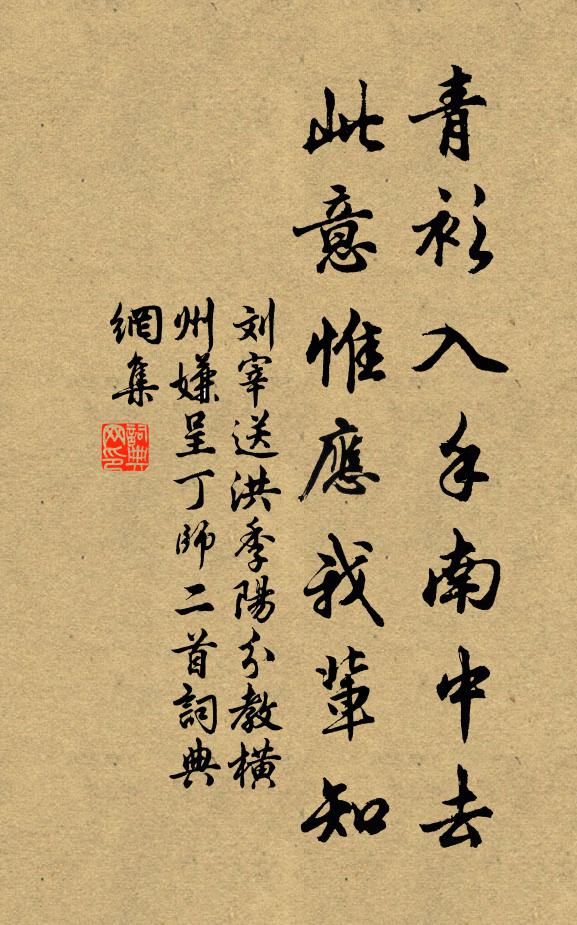 青衫入手南中去
此意惟應我輩知
刘宰送洪季陽分教橫
州嫌呈丁師二首詞典
網集
詞典網印